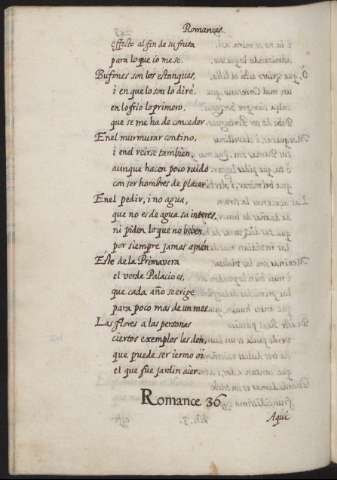 Romançes.
effecto al fin de su fruta
para lo que io me se.
Bufones son los estanques,
i en que lo son lo diré.
en lo frio lo primero,
que se me ha de conceder.
En el murmurar contino,
i en el reirse tambien,
aunque hacen poco ruido
con ser hombres de placer.
En el pedir, i no agua,
que no es de agua su interes,
ni piden lo que no beben
por siempre jamas amen
Este de la Primavera
el verde Palacio es,
que cada año se erige
para poco mas de un mes.
Las flores a las personas
ciertos exemplos les den,
que puede ser iermo oi
el que fue jardin aier.
Romance 36
Aqui